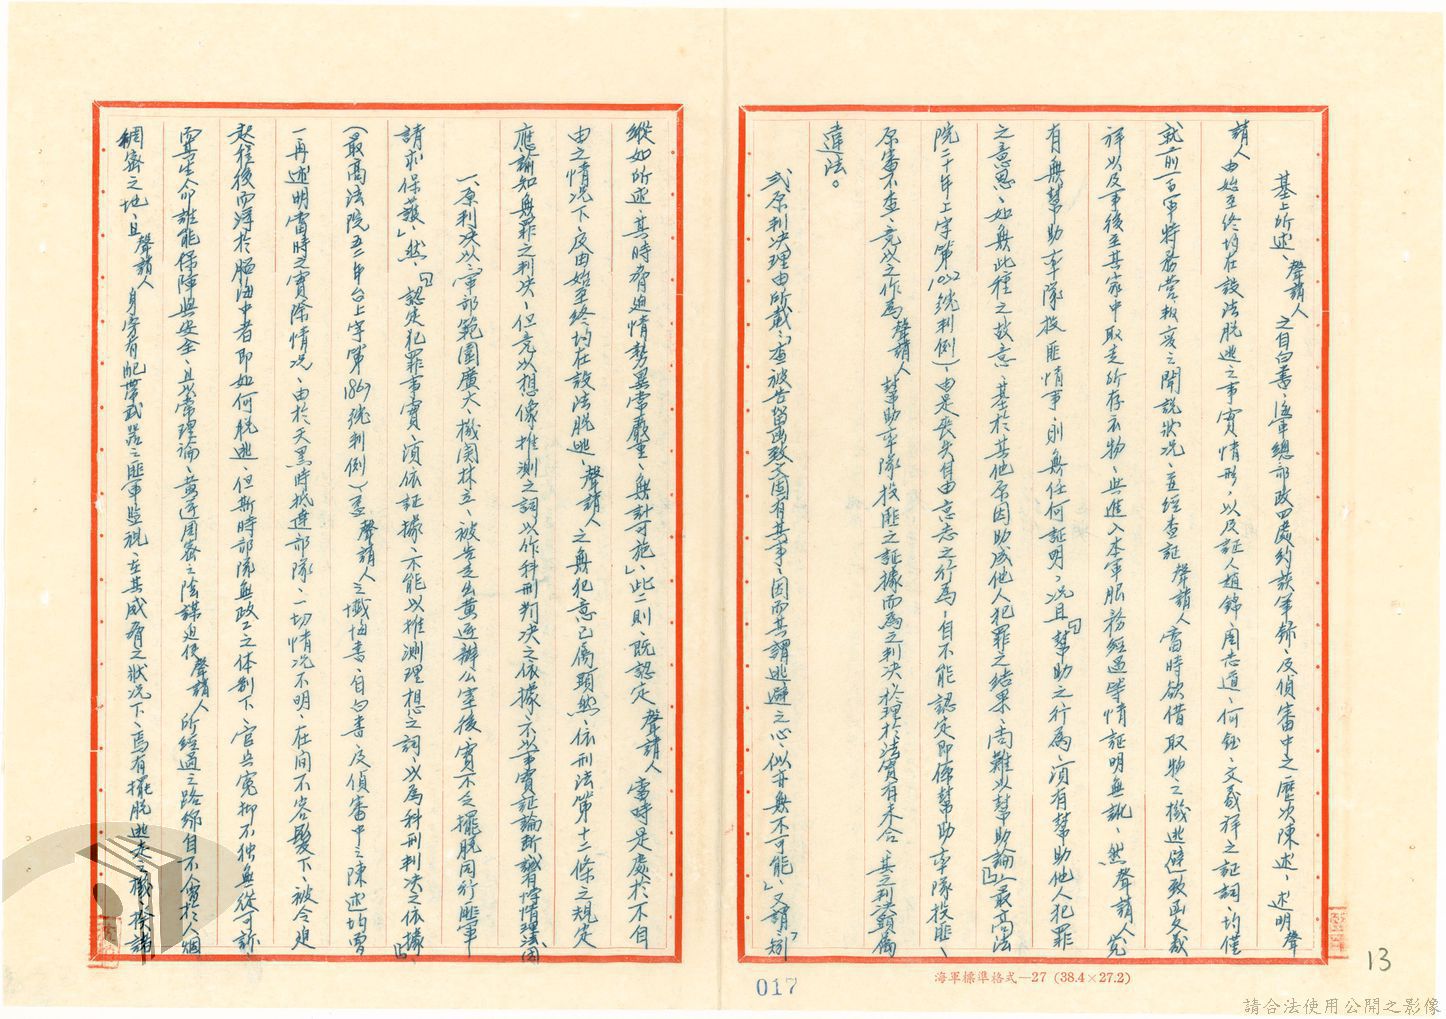 基上所述、聲請人之自白書、海軍總部政四處約談筆錄、及偵審中之歷次陳述、述明聲
請人由始至終均在設法脫逃之事實情形、以及証人趙錦、周志道、何鈺、文彧祥之証詞、均僅
就前百軍特務營叛變之聞說狀況、並經查証聲請人當時欲借取物之機逃避致函文彧
祥以及事後至其家中取走所存衣物、與進入本軍服務經過等情証明無訛、然聲請人究
有無幫助率隊投匪情事、則無任何証明、况且「幫助之行為、須有幫助他人犯罪
之意思、如無此種之故意、基於其他原因助成他人犯罪之結果、尚難以幫助論」(最高法
院二十年上字第1022號判例)、由是喪失自由意志之行為、自不能認定即係幫助率隊投匪、
原審不查、竟以之作為聲請人幫助率隊投匪之証據而為之判决、於理於法實有未合、其之判决顯屬
違法。
弍原判决理由所載、「查被告留函致文固有其事、因而其謂逃避之心、似亦無不可能」、又謂「刼
縱如所述、其時脅迫情勢異常嚴重、無計可施」、此二則、既認定聲請人當時是處於不自
由之情况下、及由始至終均在設法脫逃、聲請人之無犯意已屬顯然、依刑法第十二條之規定
應諭知無罪之判决、但竟以想像推測之詞、以作科刑判决之依據、不以事實証論斷、誠有悖情理法、因
一、原判决以「軍部範圍廣大、機関林立、被告走出黃逐辦公室後、實不乏擺脫同行匪軍
請求保護」、然、「認定犯罪事實、須依証據、不能以推測理想之詞、以為科刑判决之依據」
(最高法院五三年台上字第1867號判例)、查聲請人之懺悔書、自白書、及偵審中之陳述均曾
一再述明當時之實際情况、由於天黑時抵達部隊、一切情况不明、在間不容髮下、被令迫
起程後而浮於腦海中者即如何脫逃、但斯時部隊無政工之体制下、官兵冤抑不独無從可訴、
而其生命誰能保障與安全、且以常理論、黃逐周密之陰謀迫使聲請人所經過之路線自不會於人烟
稠密之地、且聲請人身旁有配帶武器之匪軍監視、在其威脅之狀況下、焉有擺脫逃走之機、揆諸
海軍標準格式—27 (38.4×27.2)
017
13
請合法使用公開之影像